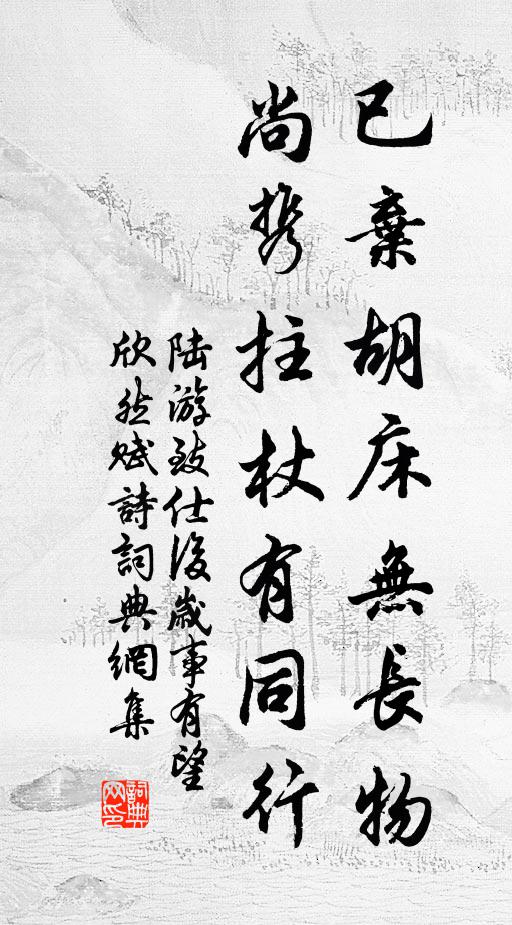 已棄胡床無長物
尚携拄杖有同行
陆游致仕後歲事有望
欣然賦詩詞典網集
詞典
网印